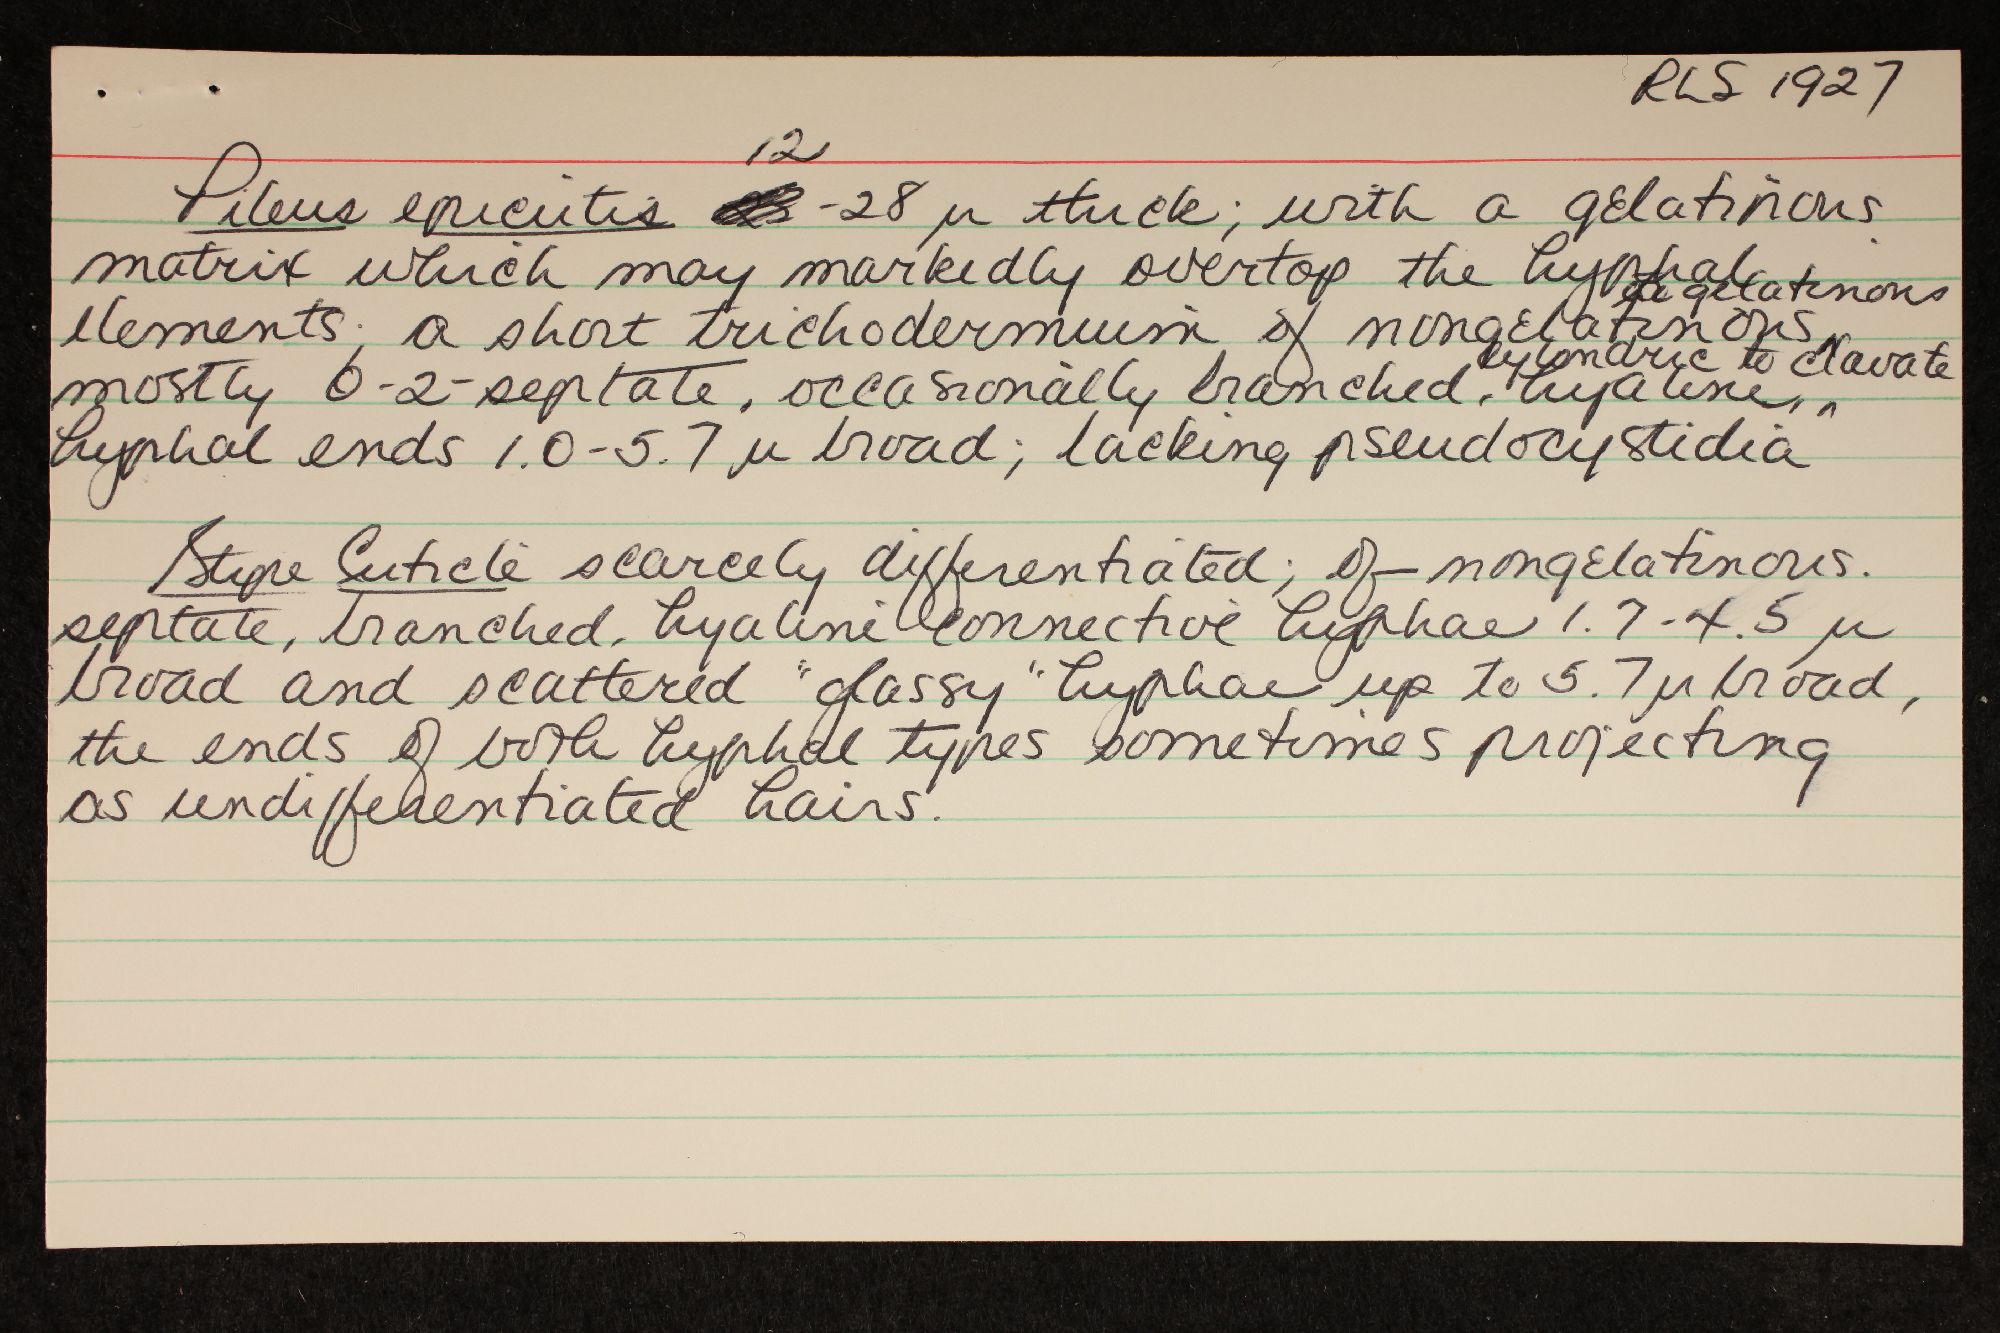 RLS 1927
12
Pileus epicutis -28 µ thick; with a gelatinous
matrix which may markedly overtop the hyphal
to gelatinous
elements; a short trichodermium of nongelatinous,
cylindric to clavate
mostly 0-2-septate, occasionally branched, hyaline,
hyphal ends 1.0-5.7 µ broad; lacking pseudocystidia
Stipe Cuticle scarcely differentiated; of nongelatinous,
septate, branched, hyaline connective hyphae 1.7-4.5 µ
broad and scattered "glassy" hyphae up to 5.7 µ broad,
the ends of both hyphal types sometimes projecting
as undifferentiated hairs.